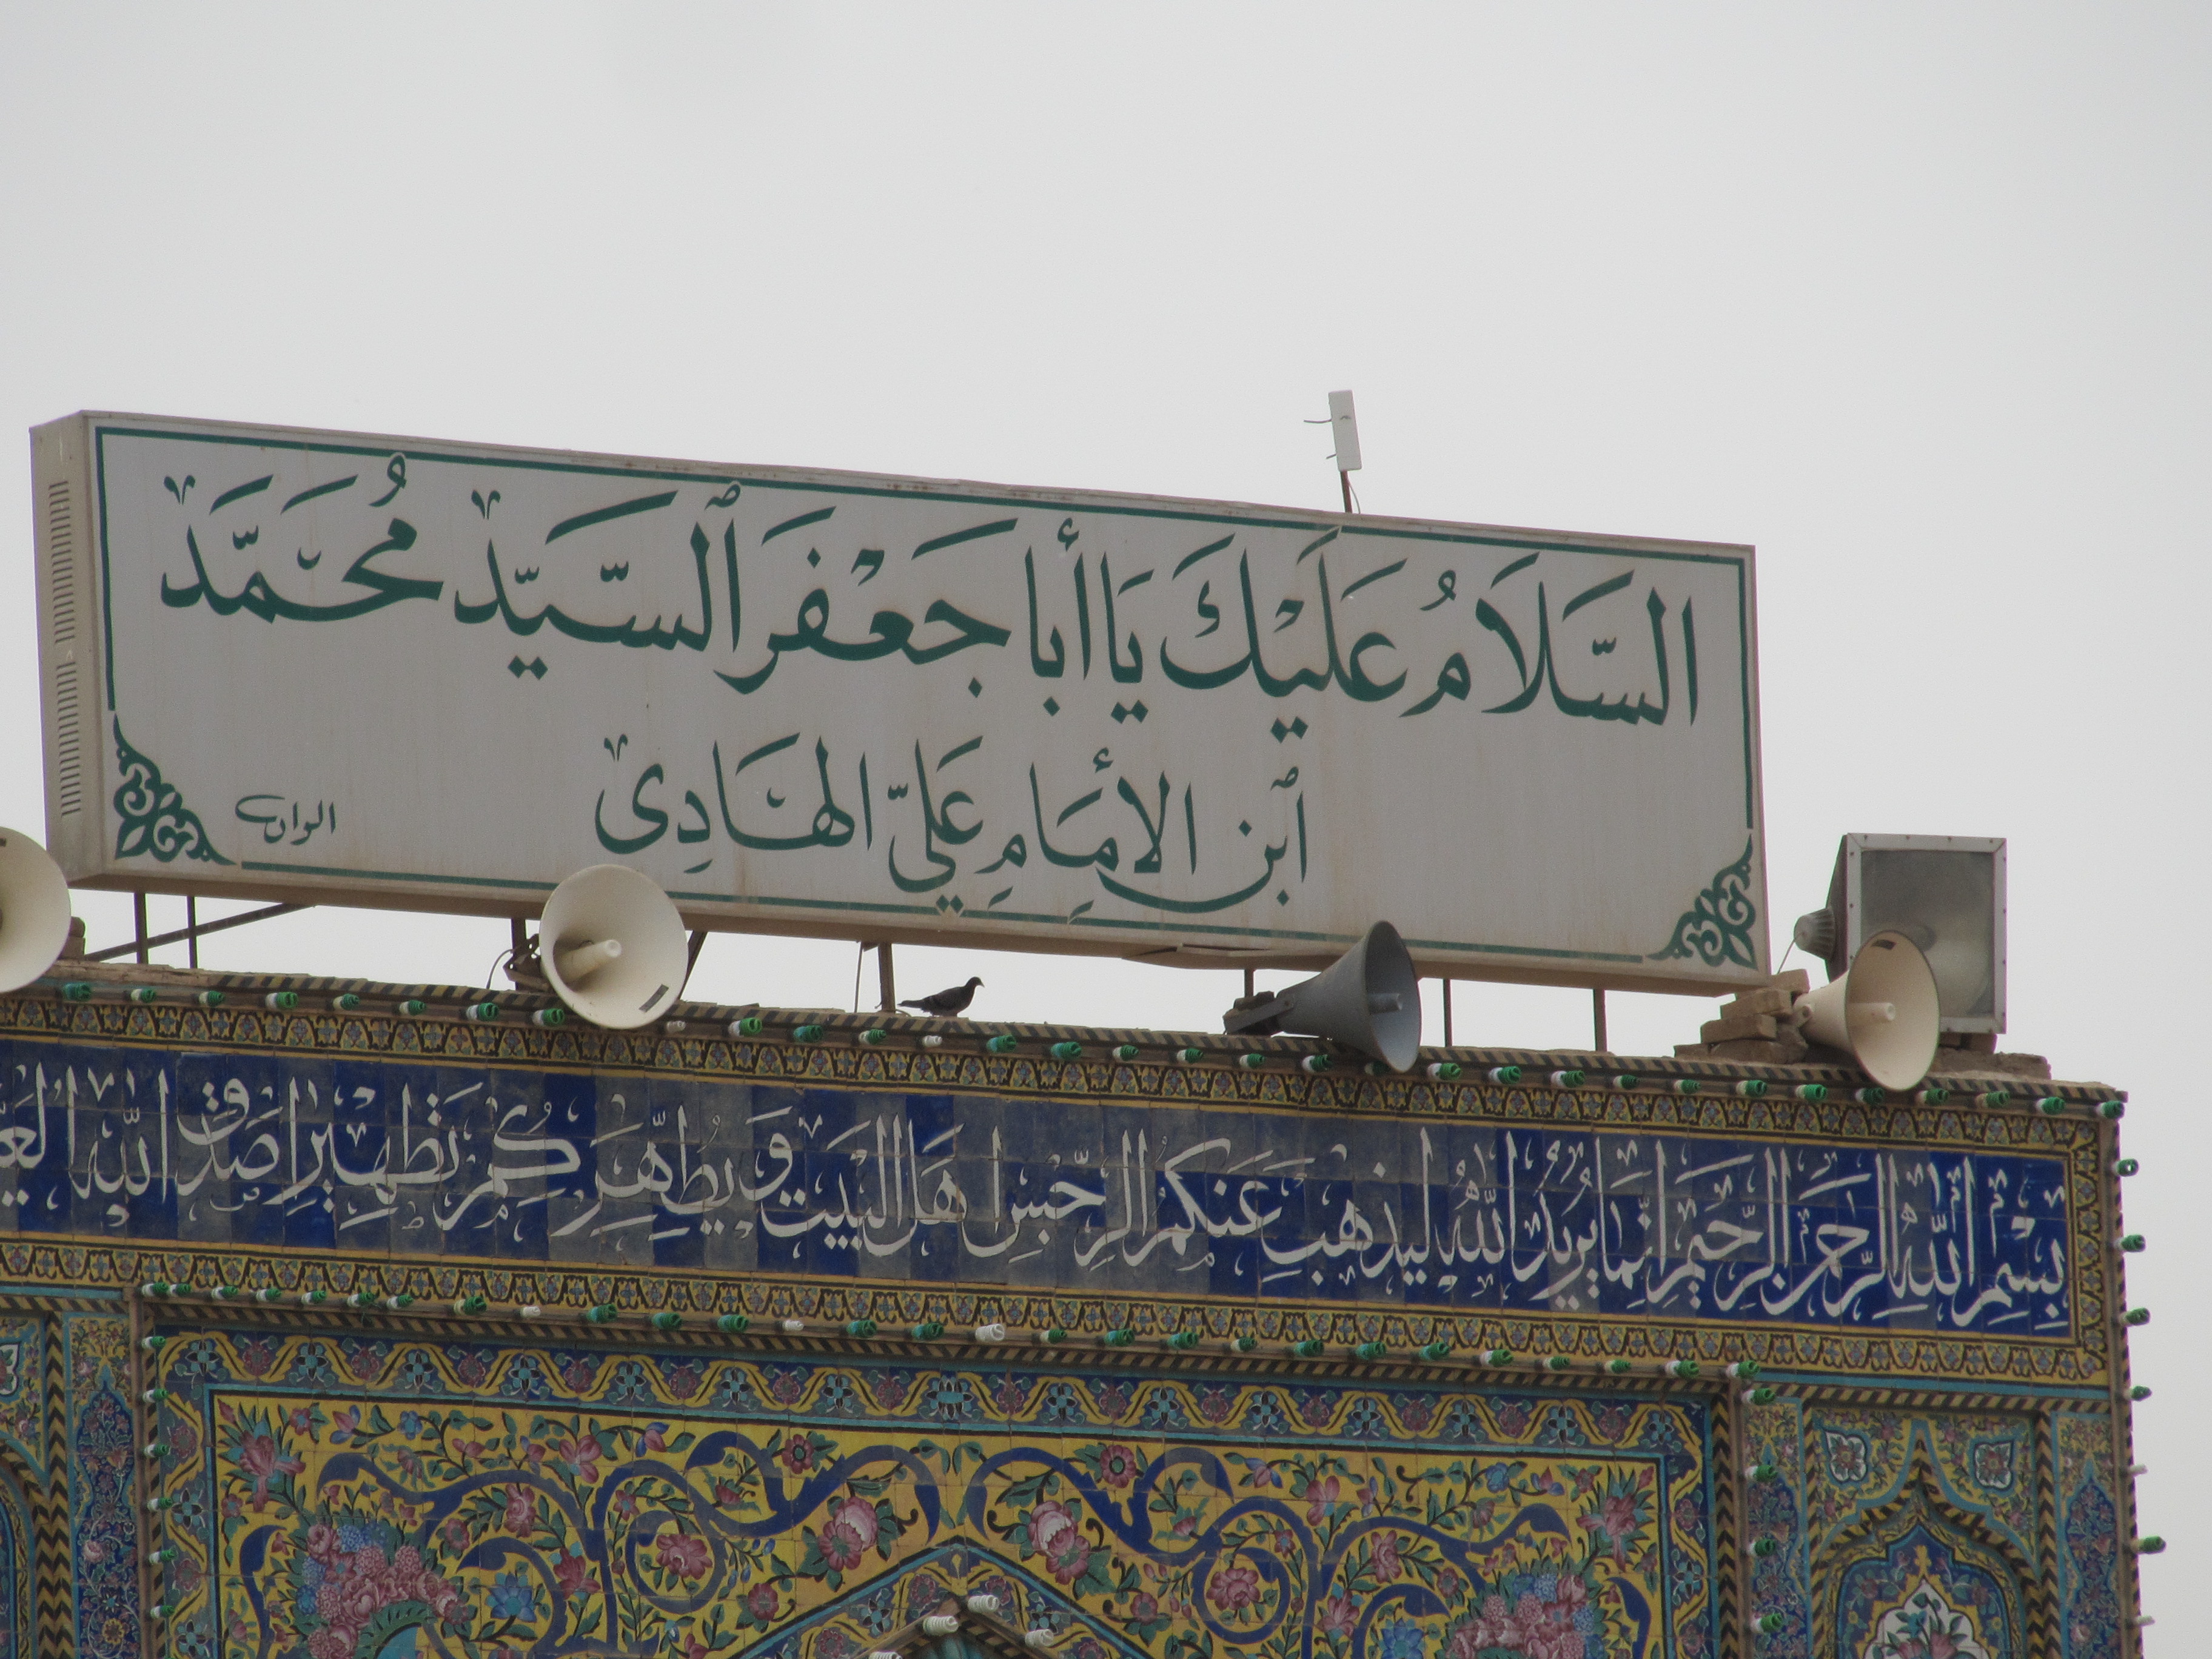 السَّلَامُ عَلَيْكَ يَا أَبَا جَعْفَرَ ٱلسَّيِّد مُحَمَّد
ٱبن الإمَامِ عَلِيّ الهَادِي
بِسْمِ اللهِ الرَّحْمٰنِ الرَّحِيمِ إِنَّمَا يُرِيدُ اللهُ لِيُذْهِبَ عَنكُمُ الرِّجْسَ أَهْلَ البَيْتِ وَيُطَهِّرَكُمْ تَطْهِيرًا صَدَقَ اللهُ